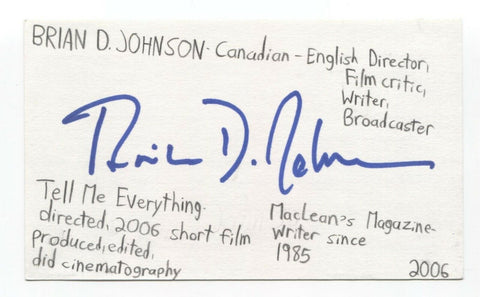 BRIAN D. JOHNSON - Canadian - English Director,
Film critic,
Writer,
Broadcaster
Brian D. Johnson
Tell Me Everything-
directed, 2006 short film
produced, edited,
did cinematography
MacLean's Magazine-
writer since
1985
2006